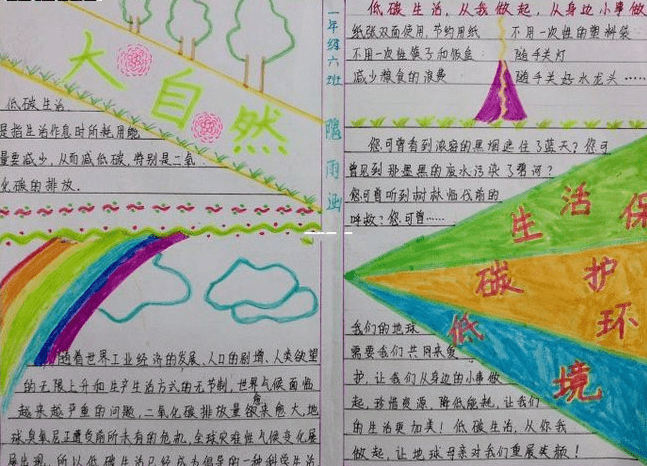 大自然
低碳生活
是指生活作息时所耗用能
量要减少,从而减低碳,特别是二氧
化碳的排放.
随着世界工业经济的发展、人口的剧增、人类欲望
的无限上升和生产生活方式的无节制,世界气候面临
越来越严重的问题,二氧化碳排放量愈来愈大,地
球臭氧层正遭受前所未有的危机,全球灾难性气候变化屡
屡出现,所以低碳生活已经成为倡导的一种科学生活
一年级六班
雨涵
低碳生活,从我做起,从身边小事做
纸张双面使用,节约用纸 不用一次性的塑料袋
不用一次性筷子和饭盒 随手关灯
减少粮食的浪费 随手关好水龙头……
您可曾看到浓密的黑烟遮住了蓝天?您可
曾见到那墨黑的废水污染了碧河?
您可曾听到树林临伐前的
呼救?您可曾……
生活保
碳护
低环
境
我们的地球
需要我们共同来爱
护,让我们从身边的小事做
起,珍惜资源、降低能耗,让我们
的生活更加美!低碳生活,从你我
做起,让地球母亲对我们重展笑颜!